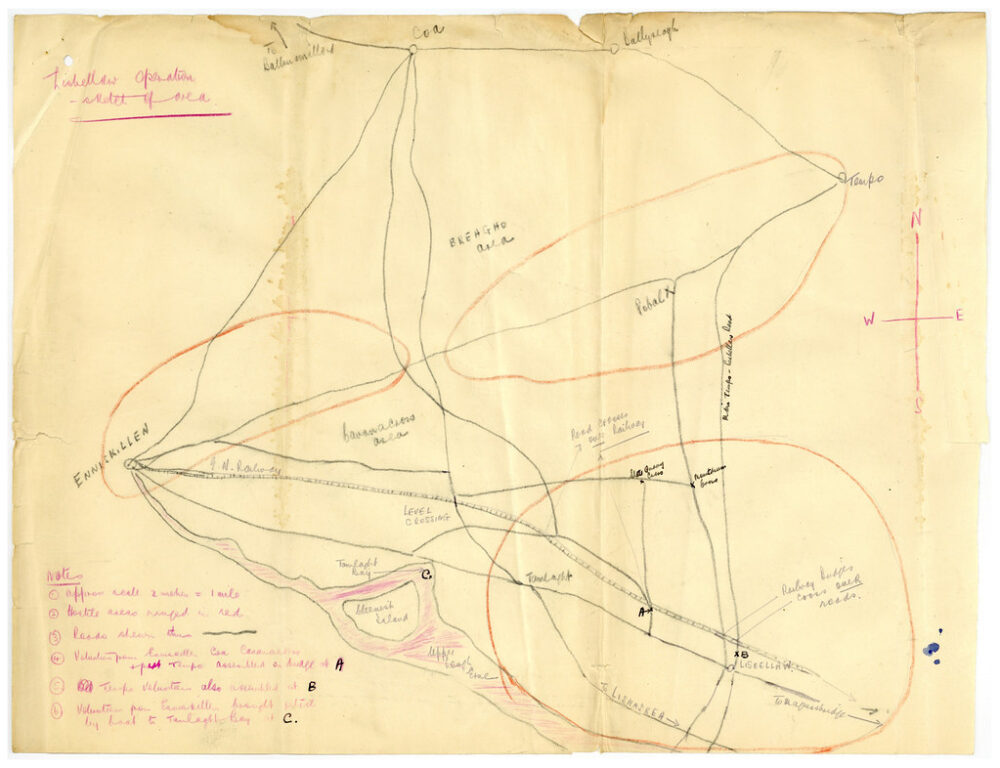 To
Coa
Ballyreagh
Lisbellaw Operation
- sketch of area
Tempo
BREAGHO
area
N
W
E
S
Pobal
Main Tempo - Lisbellaw Road
ENNISKILLEN
Cavanacross
area
Road crosses
Railway
G. N. Railway
Cross
Cross
LEVEL
CROSSING
Tamlaght
Bay
C.
Tamlaght
A
Cleenish
Island
Railway Bridges
cross over
roads.
B
LISBELLAW.
Upper
Lough
Erne
To LISNAREA
To Maguiresbridge
Notes
① approx scale 2 inches = 1 mile
② Hostile areas ringed in red
③ Roads shewn thus
④ Volunteers from Enniskillen Coa Cavanacross
Tempo assembled on bridge at A
⑤ Tempo Volunteers also assembled at B
⑥ Volunteers from Enniskillen brought
by boat to Tamlaght Bay at C.